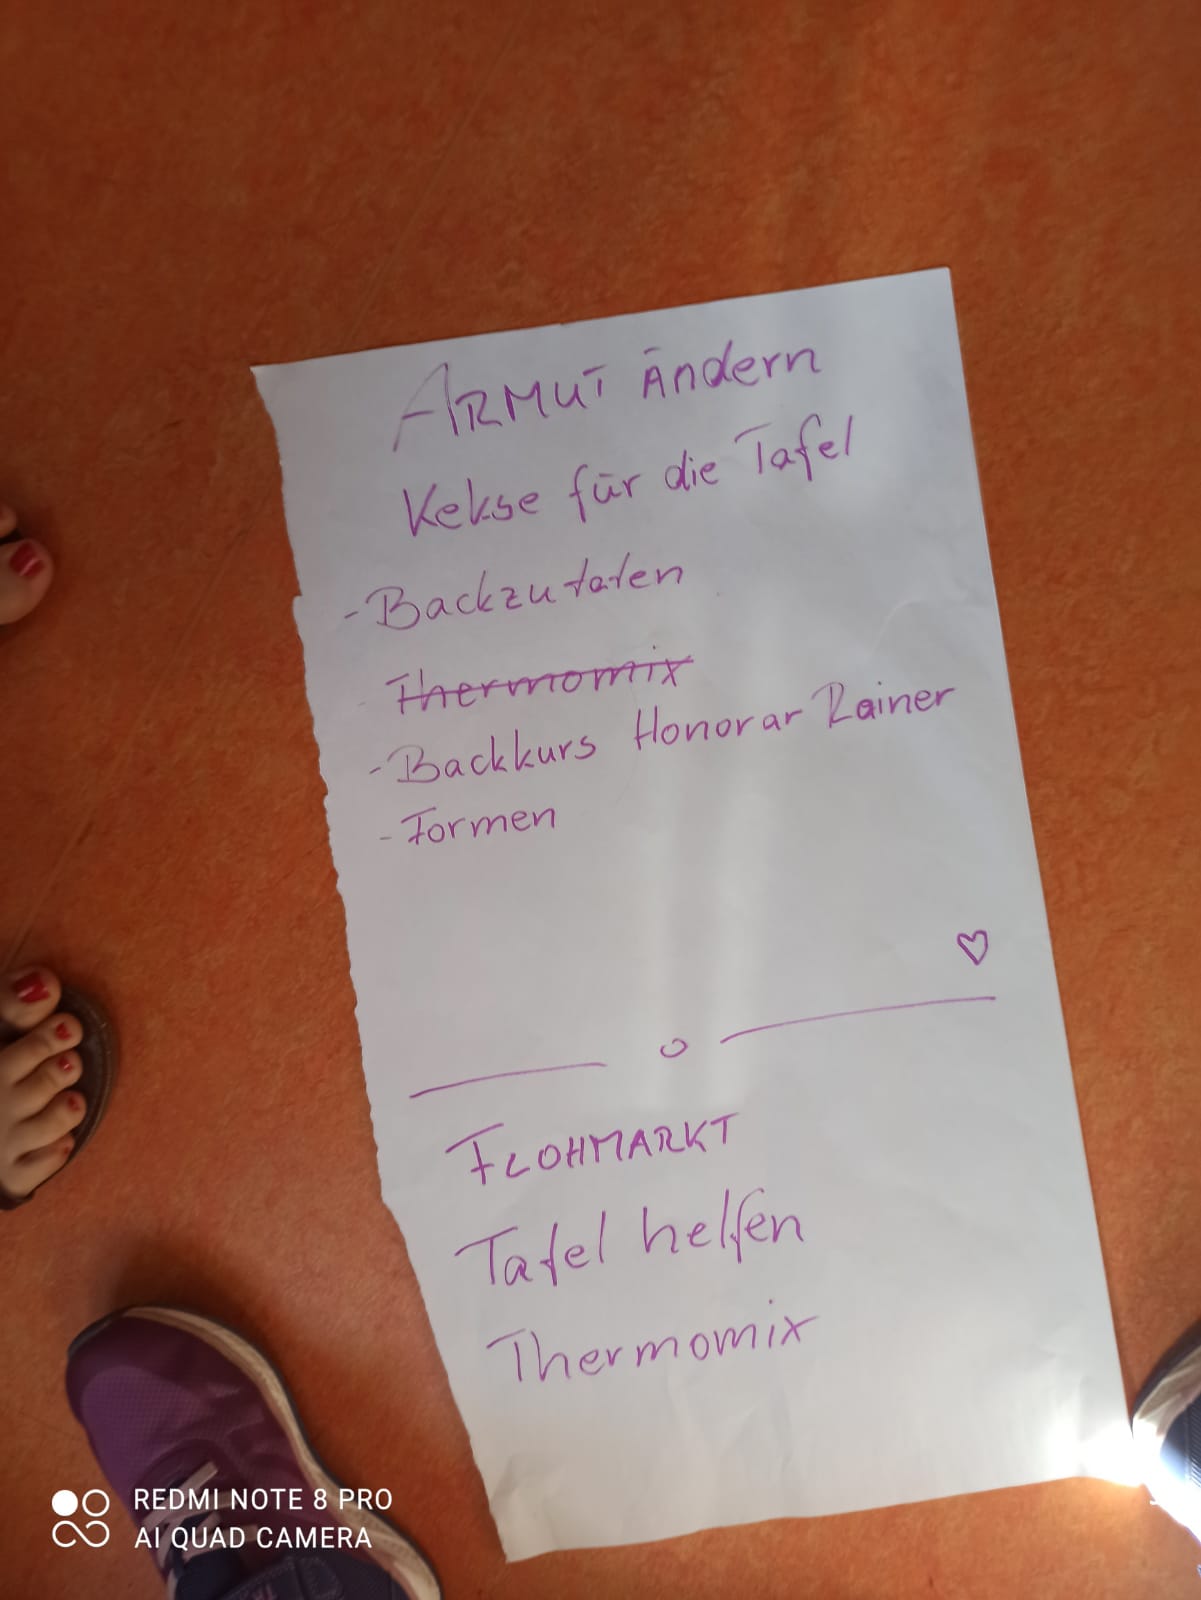 ARMUT Ändern
Kekse für die Tafel
- Backzutaten
Thermomix
- Backkurs Honorar Rainer
- Formen
FLOHMARKT
Tafel helfen
Thermomix
REDMI NOTE 8 PRO
AI QUAD CAMERA